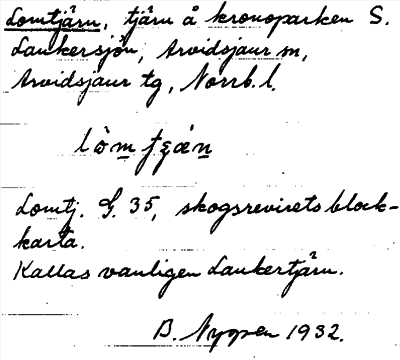 Lomtjärn, tjärn å kronoparken S.
Laukersjön, Arvidsjaur sn,
Arvidsjaur tg, Norrb. l.
Lomtj. G. 35, skogsrevirets block-
karta.
Kallas vanligen Laukertjärn.
B. Nygren 1932.